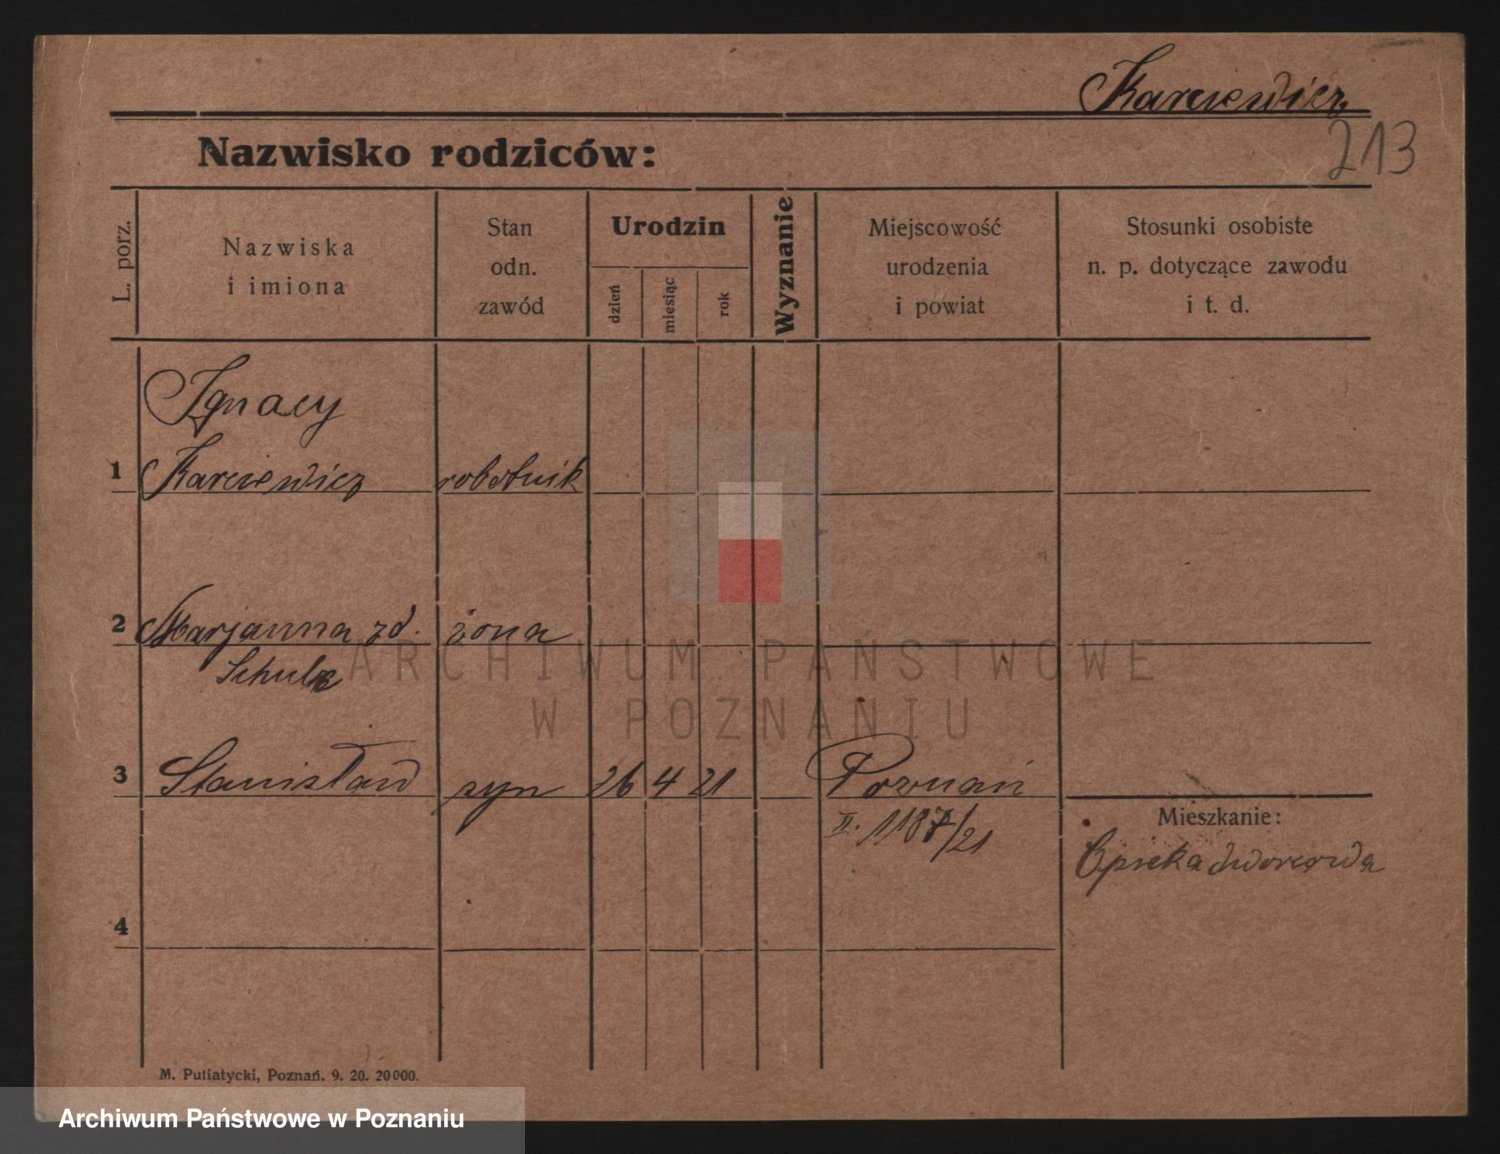 Karcewicz
213
Nazwisko rodziców:
L. porz.
Nazwiska
i imiona
Stan
odn.
zawód
Urodzin
dzień
miesiąc
rok
Wyznanie
Miejscowość
urodzenia
i powiat
Stosunki osobiste
n. p. dotyczące zawodu
i t. d.
Ignacy
1 Karcewicz robotnik
2 Marjanna zd. żona
Schulz
ARCHIWUM PAŃSTWOWE
W POZNANIU
3 Stanisław syn 26 4 21 Poznań
II. 1187/21
Mieszkanie:
Opieka dworcowa
4
M. Putiatycki, Poznań. 9. 20. 20000.
Archiwum Państwowe w Poznaniu